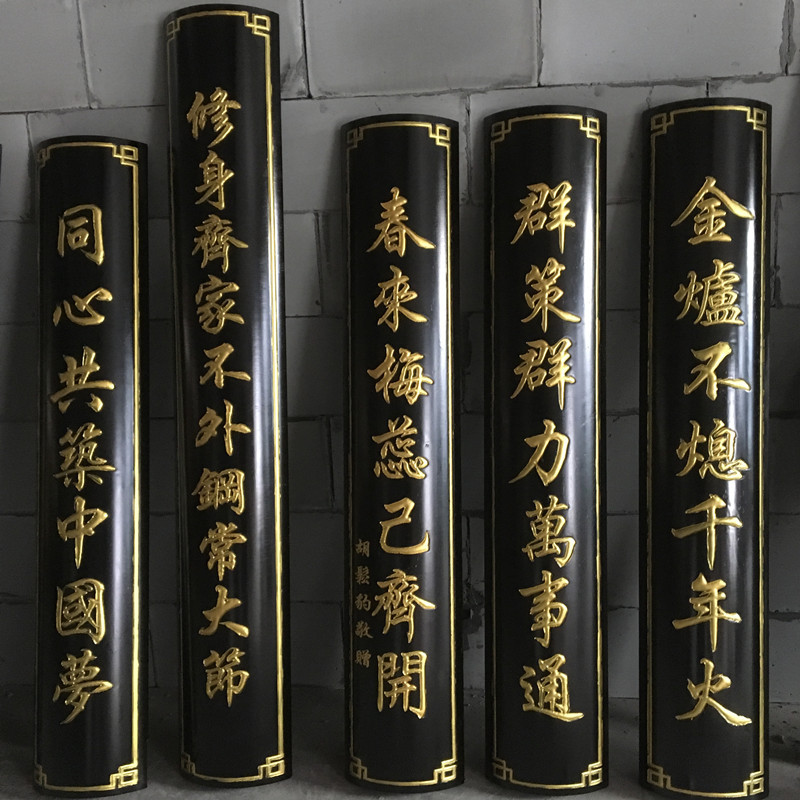 同心共築中國夢
修身齊家不外鋼常大節
春來梅蕊己齊開
胡鬆豹敬贈
群策群力萬事通
金爐不熄千年火